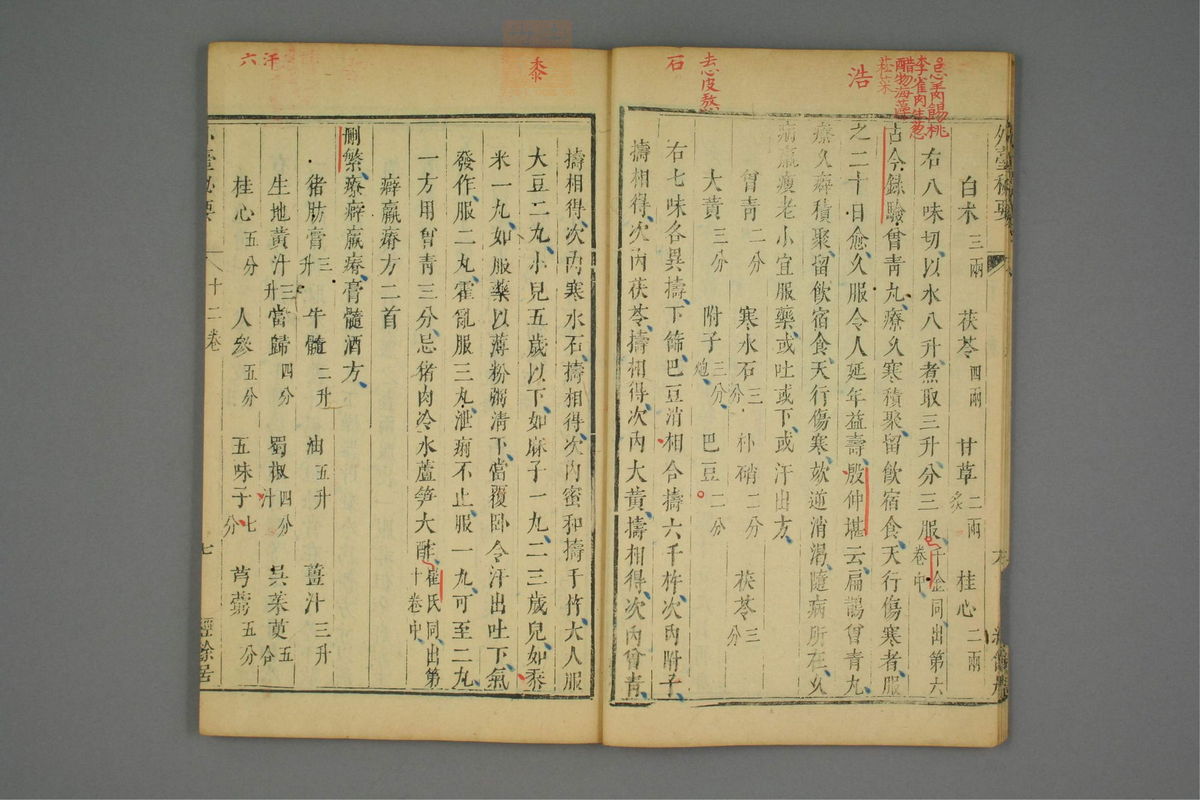 忌羊肉餳桃
李雀肉生葱
醋物海藻
菘菜
浩
去心皮熬
石
白朮三兩 茯苓四兩 甘草二兩炙 桂心二兩
右八味切以水八升煮取三升分三服千金同出第六卷中
古今錄驗曾青丸療久寒積聚留飲宿食天行傷寒者服
之二十日愈久服令人延年益壽殷仲堪云扁鵲曾青丸
療久癖積聚留飲宿食天行傷寒欬逆消渴隨病所在久
病羸瘦老小宜服藥或吐或下或汗出方
曾青二分 寒水石三分 朴硝二分 茯苓三分
大黃三分 附子三分炮 巴豆二分
右七味各異擣下篩巴豆消相合擣六千杵次內附子
擣相得次內茯苓擣相得次內大黃擣相得次內曾青
黍
汗
六
擣相得次內寒水石擣相得次內蜜和擣千杵大人服
大豆二丸小兒五歲以下如麻子一丸二三歲兒如黍
米一丸如服藥以薄粉粥清下當覆臥令汗出吐下氣
發作服二丸霍亂服三丸泄痢不止服一丸可至二丸
一方用曾青三分忌猪肉冷水蘆笋大酢崔氏同出第十卷中
癖羸瘠方二首
刪繁療癖羸瘠膏髓酒方
猪肪膏三升 牛髓二升 油五升 薑汁三升
生地黃汁三升 當歸四分 蜀椒四分汁 吳茱萸五合
桂心五分 人參五分 五味子七分 芎藭五分
外臺秘要 十二卷 七 經餘居